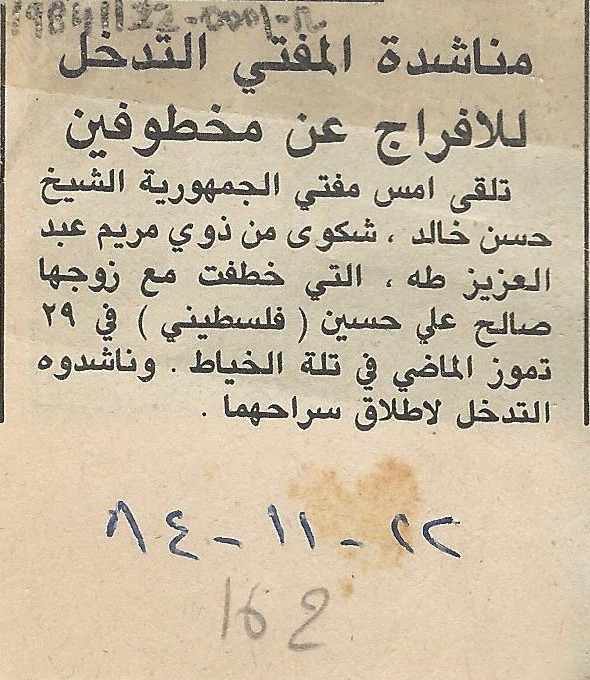 19841122-0001-R
مناشدة المفتي التدخل
للافراج عن مخطوفين
تلقى امس مفتي الجمهورية الشيخ
حسن خالد ، شكوى من ذوي مريم عبد
العزيز طه ، التي خطفت مع زوجها
صالح علي حسين ( فلسطيني ) في ٢٩
تموز الماضي في تلة الخياط . وناشدوه
التدخل لاطلاق سراحهما .
٢٢ - ١١ - ٨٤
162